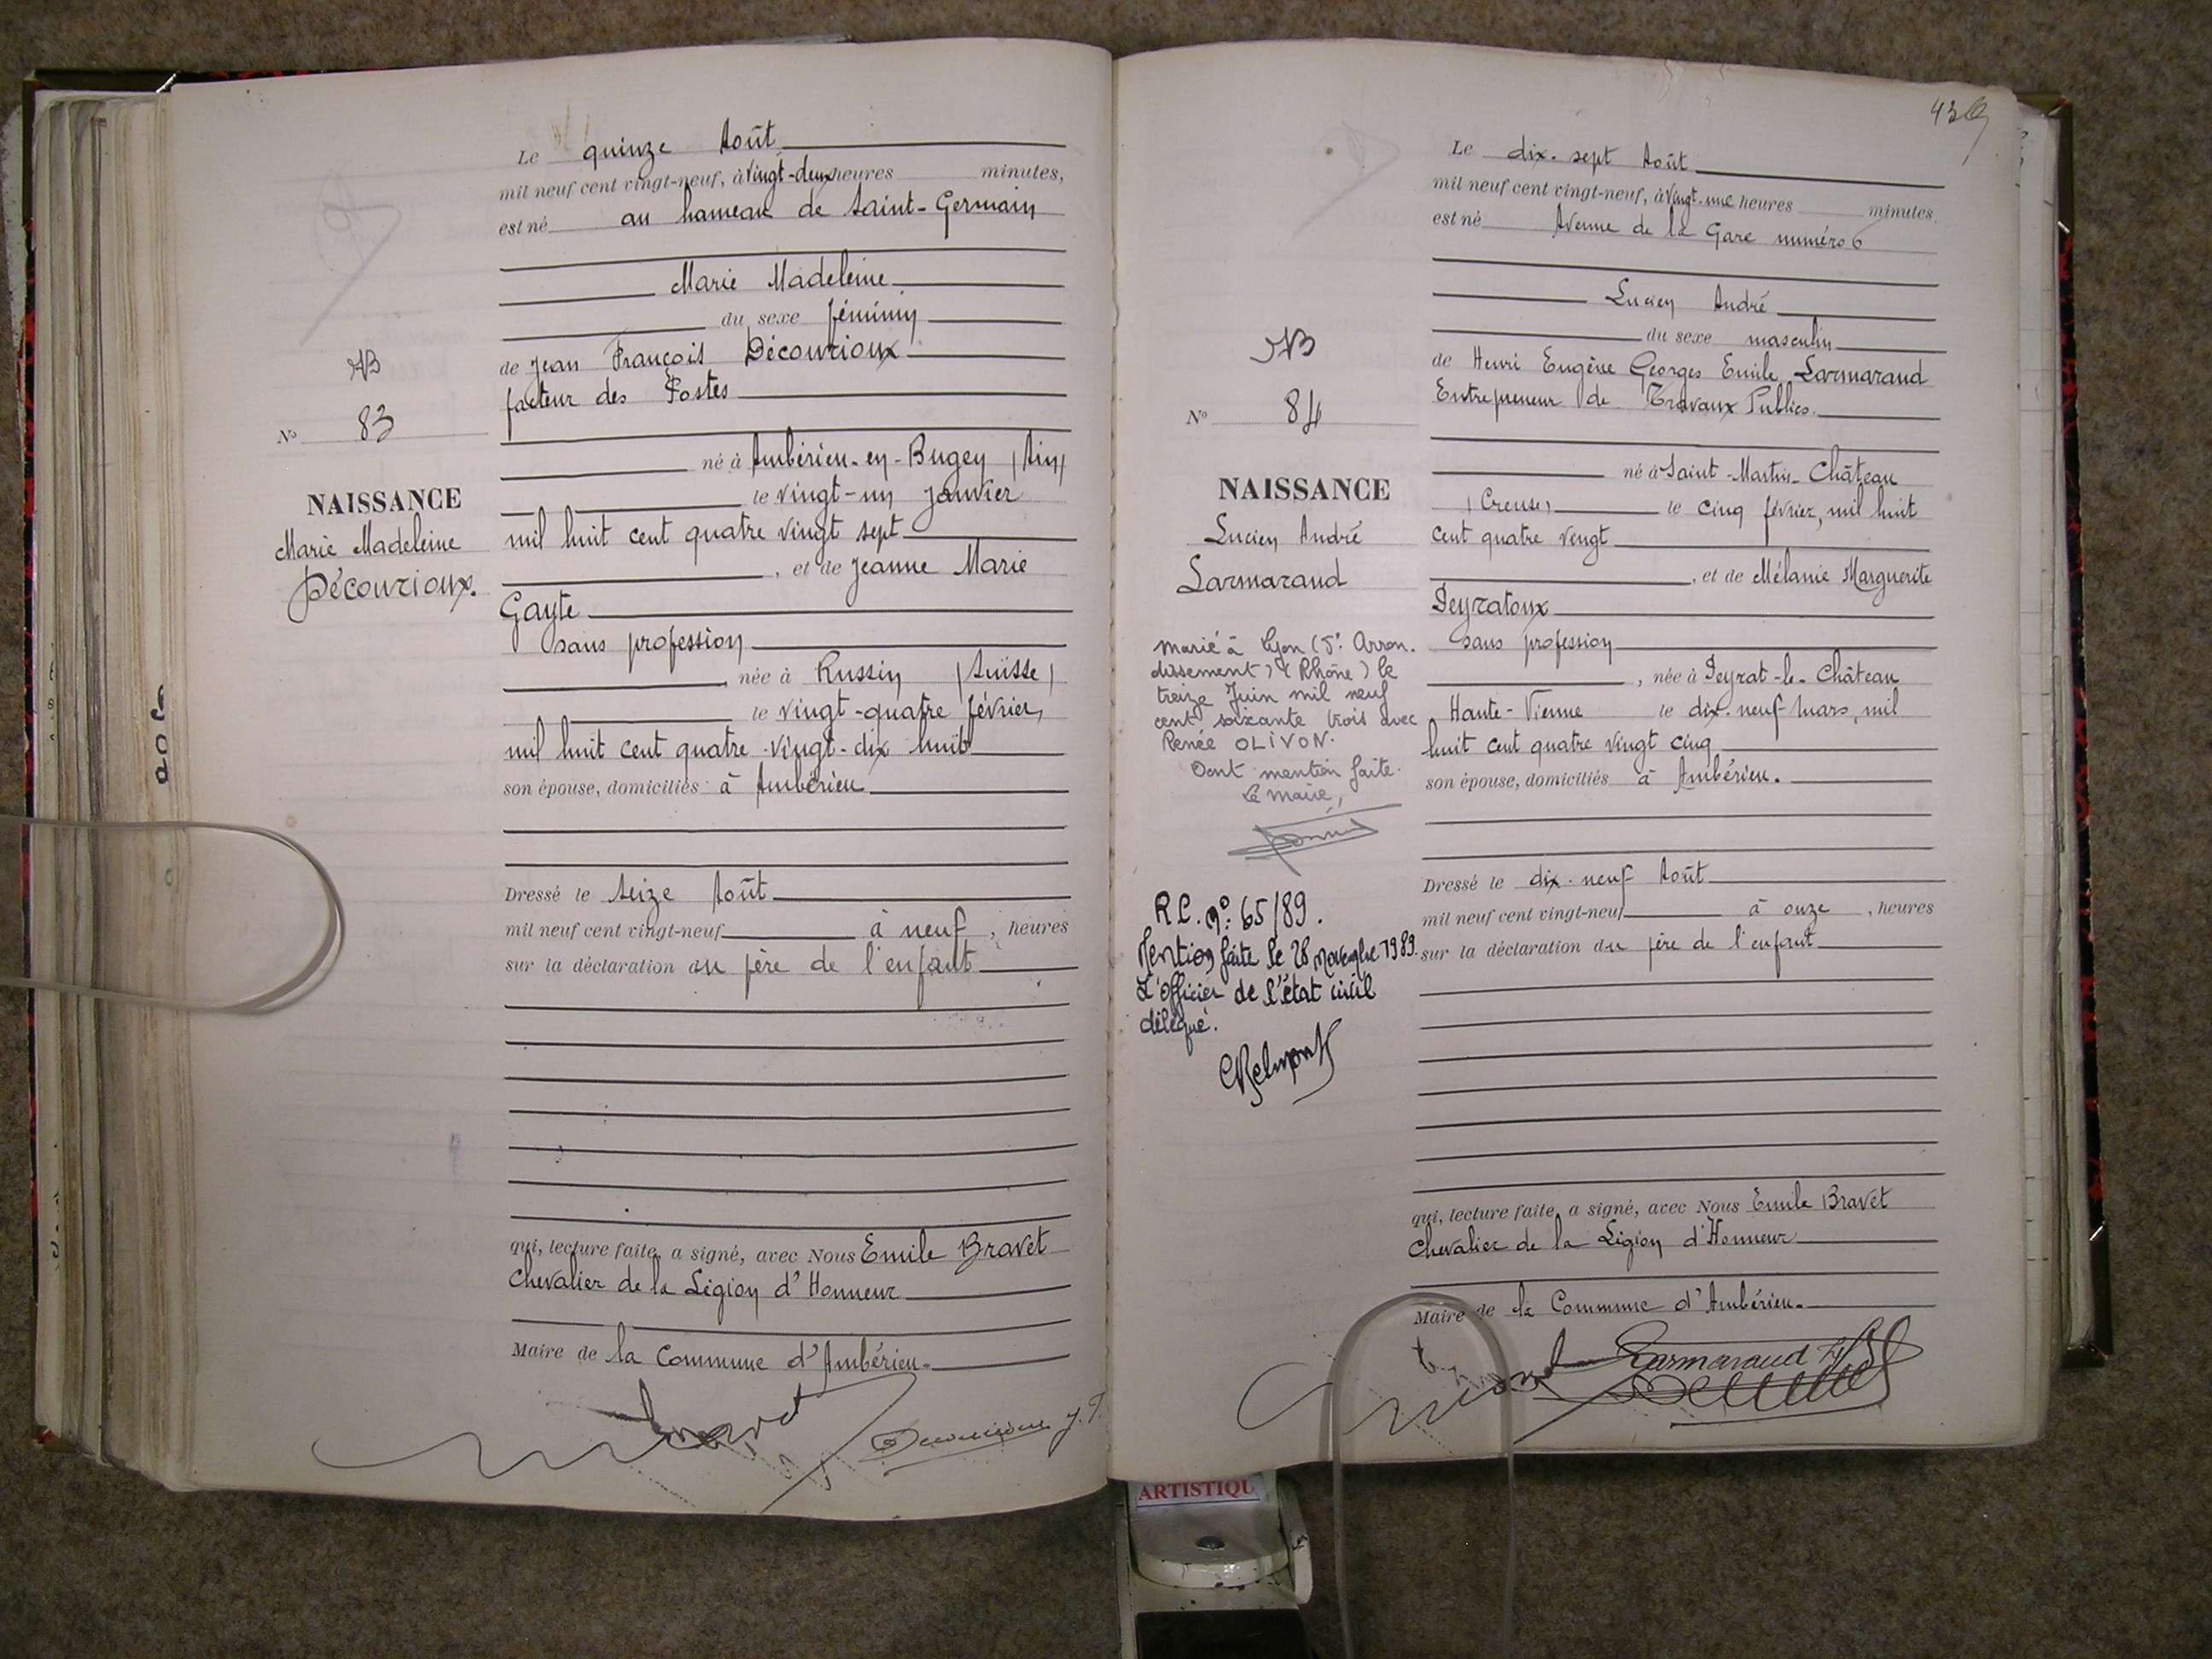 Le quinze Août
mil neuf cent vingt-neuf, à vingt-deux heures minutes,
est né au hameau de Saint-Germain
Marie Madeleine
du sexe féminin
de Jean François Décourioux
facteur des Postes
né à Ambérieu-en-Bugey (Ain)
le vingt-un janvier
mil huit cent quatre vingt sept
, et de Jeanne Marie
Gayte
sans profession
, née à Russin (Suisse)
le vingt-quatre février,
mil huit cent quatre-vingt-dix huit
son épouse, domiciliés à Ambérieu
Dressé le seize Août
mil neuf cent vingt-neuf à neuf, heures
sur la déclaration du père de l'enfant
qui, lecture faite, a signé, avec Nous Emile Bravet
Chevalier de la Légion d'Honneur
Maire de la Commune d'Ambérieu.
N° 83
NAISSANCE
Marie Madeleine
Décourioux.
Le dix-sept Août
mil neuf cent vingt-neuf, à vingt-une heures minutes,
est né Avenue de la Gare numéro 6
Lucien André
du sexe masculin
de Henri Eugène Georges Emile Larmaraud
Entrepreneur de Travaux Publics.
né à Saint-Martin-Château
(Creuse) le cinq février, mil huit
cent quatre vingt
, et de Mélanie Marguerite
Peyratoux
sans profession
, née à Peyrat-le-Château
Haute-Vienne le dix-neuf mars, mil
huit cent quatre vingt cinq
son épouse, domiciliés à Ambérieu.
Dressé le dix-neuf Août
mil neuf cent vingt-neuf à onze, heures
sur la déclaration du père de l'enfant
qui, lecture faite, a signé, avec Nous Emile Bravet
Chevalier de la Légion d'Honneur
Maire de la Commune d'Ambérieu.
Larmaraud
N° 84
NAISSANCE
Lucien André
Larmaraud
marié à Lyon (5e Arron.
dissement) (Rhône) le
treize Juin mil neuf
cent soixante trois avec
Renée OLIVON.
Dont mention faite.
Le maire,
R.C. n°: 65/89.
Mention faite le 28 novembre 1989.
L'officier de l'état civil
délégué.
ARTISTIQU